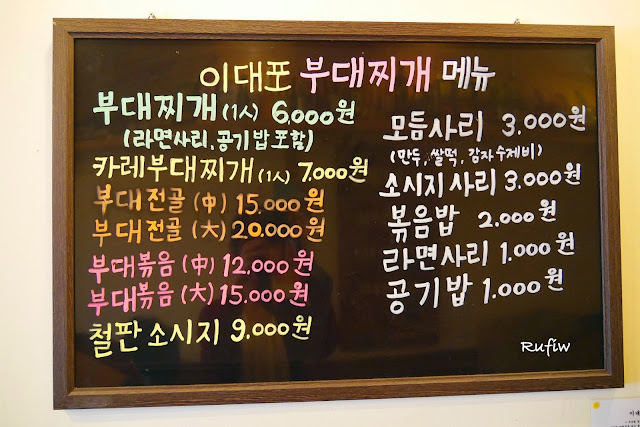 이대포 부대찌개 메뉴
부대찌개 (1人) 6,000원
(라면사리, 공기밥 포함)
카레부대찌개 (1人) 7,000원
부대전골 (中) 15,000원
부대전골 (大) 20,000원
부대볶음 (中) 12,000원
부대볶음 (大) 15,000원
철판 소시지 9,000원
모듬사리 3,000원
(만두, 쌀떡, 감자수제비)
소시지사리 3,000원
볶음밥 2,000원
라면사리 1,000원
공기밥 1,000원
Rufiw